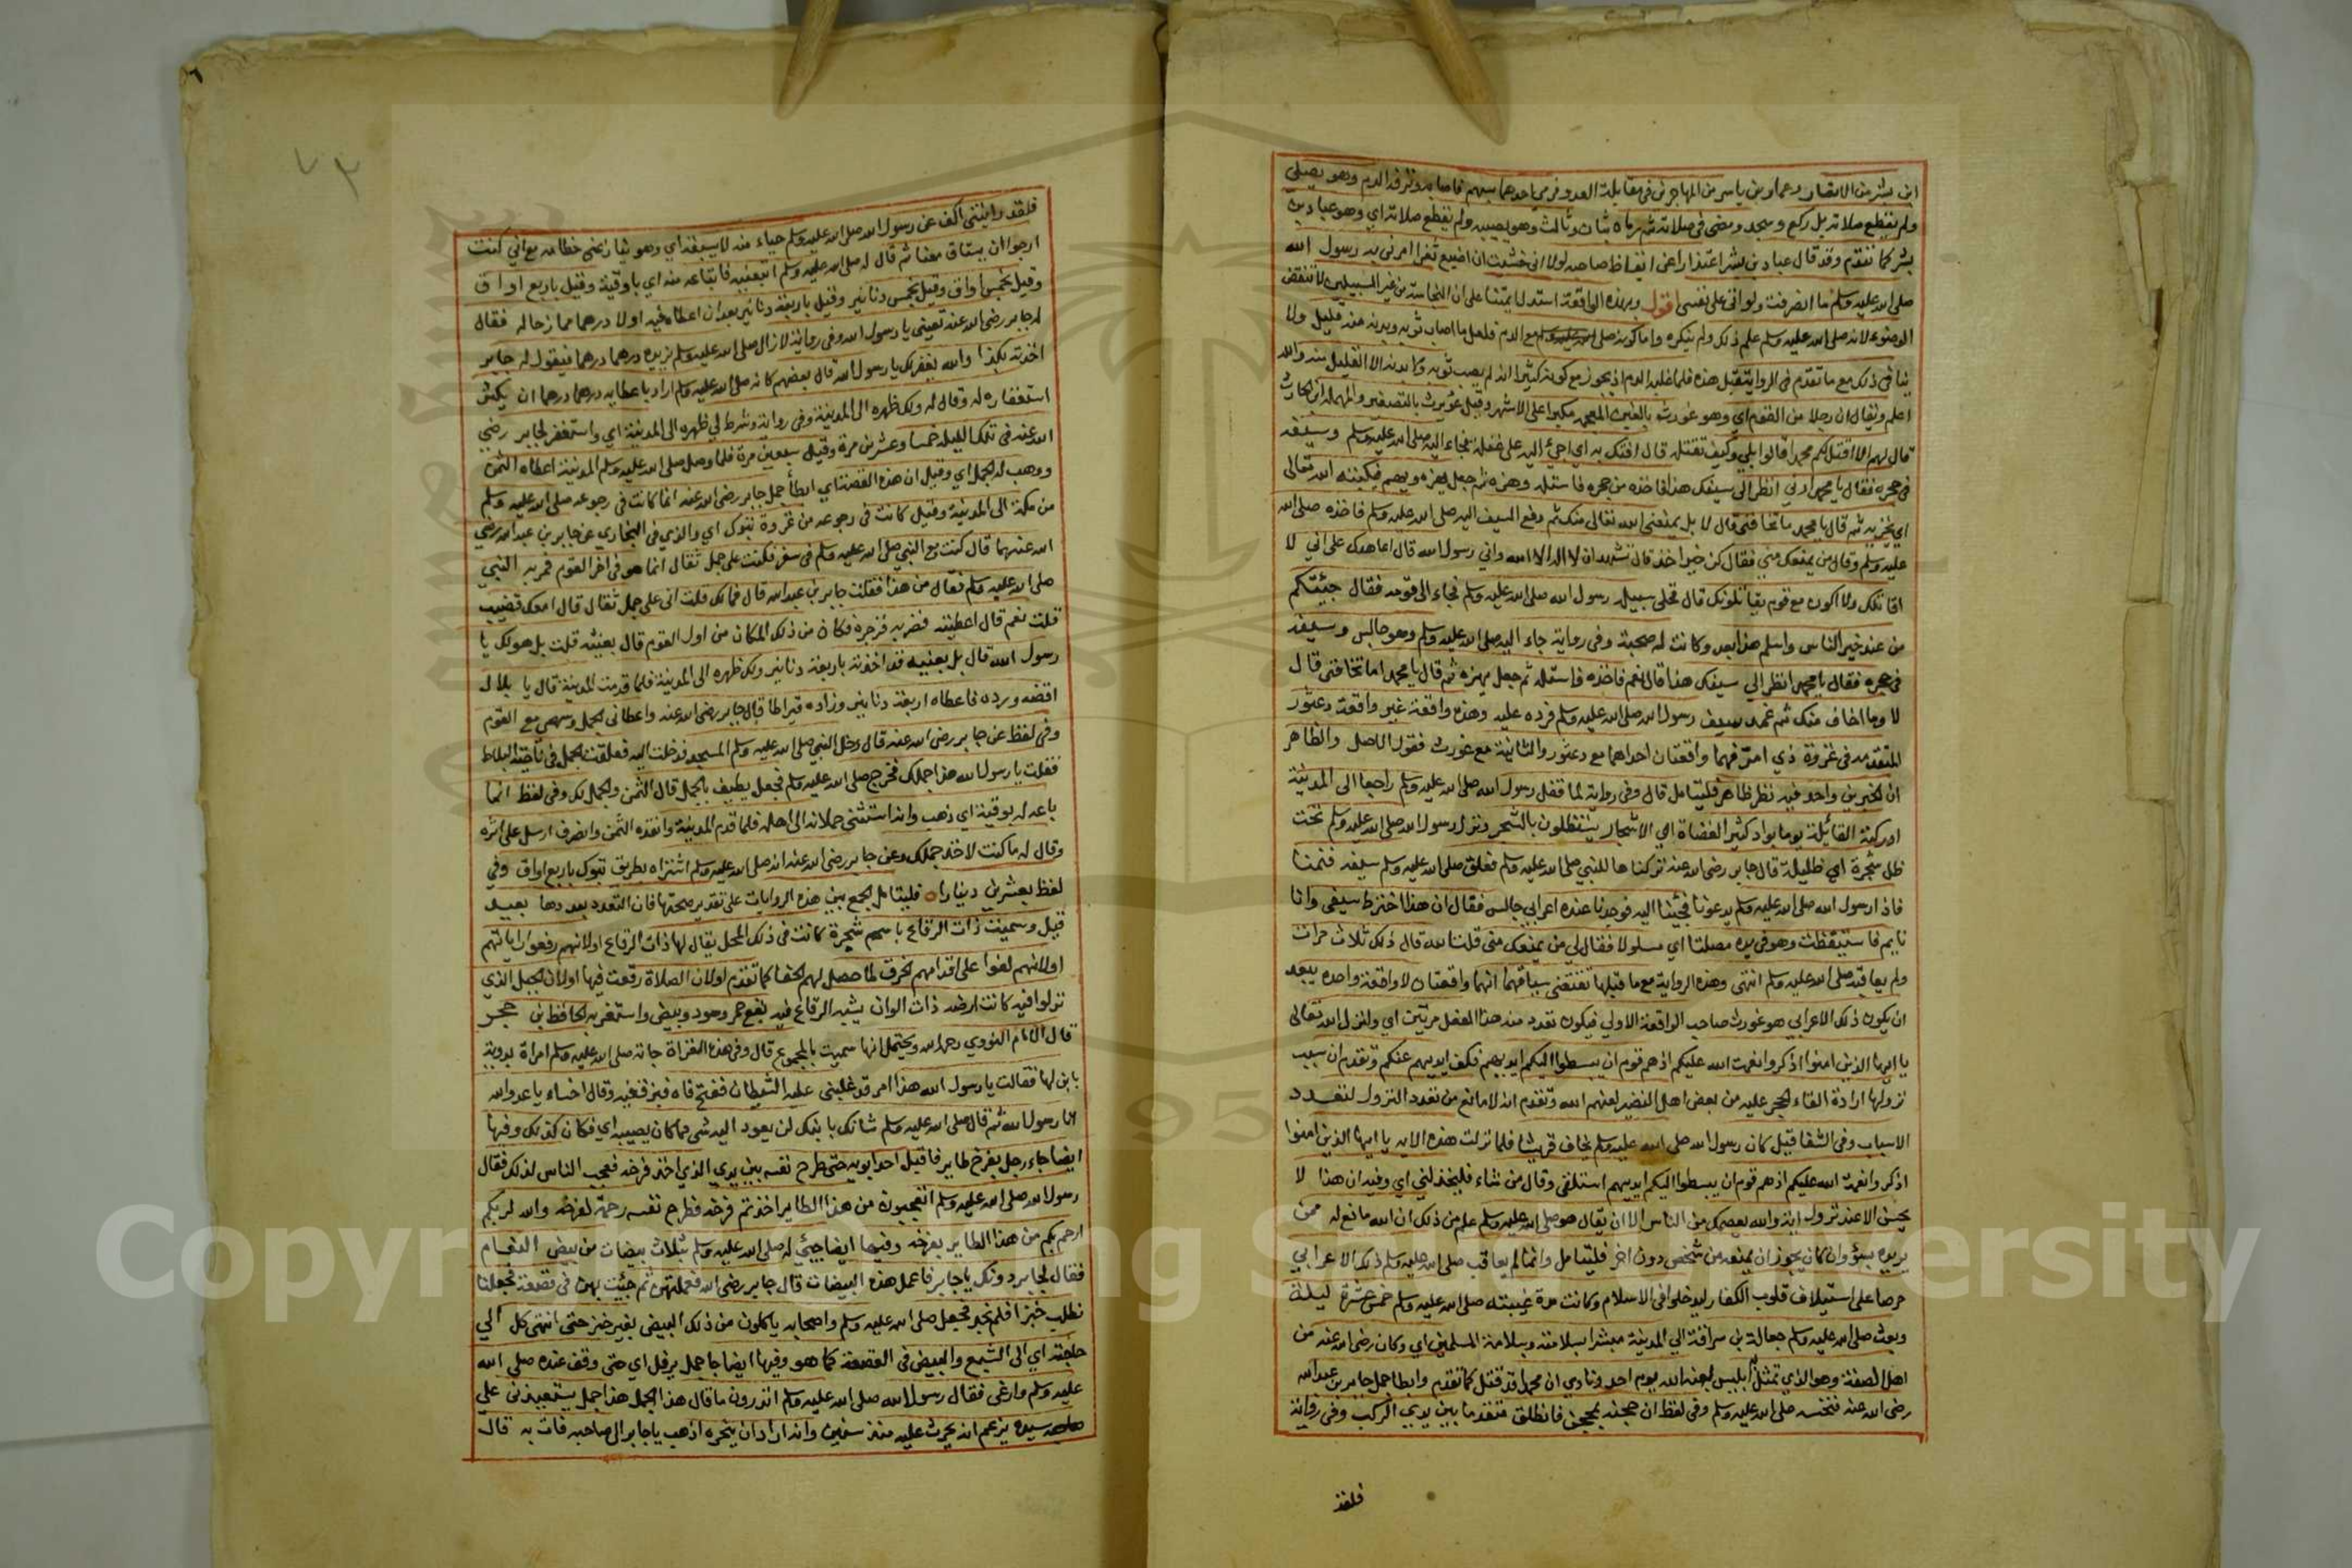 ابن بشر من الانصار وعمار بن ياسر من المهاجرين في مقابلة العدو فرمى احدهما بسهم فاصابه ونزفه الدم وهو يصلي
ولم يقطع صلاته بل ركع وسجد ومضى في صلاته ثم رماه بثان وثالث وهو يصيبه ولم يقطع صلاته اي وهو عباد بن
بشر كما تقدم وقد قال عباد بن بشر اعتذارا عن ايقاظ صاحبه لولا اني خشيت ان اضيع ثغرا امرني به رسول الله
صلى الله عليه وسلم ما انصرفت ولو اتى على نفسي اقول وبهذه الواقعة استدل ايمتنا على ان النجاسة من غير السبيلين لا تنقض
الوضوء لانه صلى الله عليه وسلم علم ذلك ولم ينكره واما كونه صلى مع الدم فلعل ما اصاب ثوبه وبدنه منه قليل ولا
ينافي ذلك مع ما تقدم في الرواية قبل هذه فلما غلبه الدم اذ يجوز مع كونه كثيرا انه لم يصب ثوبه ولا بدنه الا القليل منه والله
اعلم ويقال ان رجلا من القوم اي وهو غورث بالغين المعجمة مكبرا على الاشهر وقيل غويرث بالتصغير والمهملة ابن الحارث
قال لهم الا اقتل لكم محمدا قالوا بلى وكيف تقتله قال افتك به اي اجئ اليه على غفلة فجاء اليه صلى الله عليه وسلم وسيفه
في حجره فقال يا محمد ارني انظر الى سيفك هذا فاخذه من حجره فاستله وهزه ثم جعل يهزه ويهم فيكبته الله تعالى
اي يخزيه ثم قال يا محمد ما تخافني قال لا بل يمنعني الله تعالى منك ثم دفع السيف اليه صلى الله عليه وسلم فاخذه صلى الله
عليه وسلم وقال من يمنعك مني فقال كن خير اخذ قال تشهد ان لا اله الا الله واني رسول الله قال اعاهدك على اني لا
اقاتلك ولا اكون مع قوم يقاتلونك قال فخلى سبيله رسول الله صلى الله عليه وسلم فجاء الى قومه فقال جئتكم
من عند خير الناس واسلم هذا بعد وكانت له صحبة وفي رواية جاء اليه صلى الله عليه وسلم وهو جالس وسيفه
في حجره فقال يا محمد انظر الى سيفك هذا قال نعم فاخذه فاستله ثم جعل يهزه ثم قال يا محمد اما تخافني قال
لا وما اخاف منك ثم غمد سيف رسول الله صلى الله عليه وسلم فرده عليه وهذه واقعة غير واقعة دعثور
المتقدمه في غزوة ذي امر فهما واقعتان احداهما مع دعثور والثانية مع غورث فقول الاصل والظاهر
ان الخبرين واحد فيه نظر ظاهر فليتامل قال وفي رواية لما قفل رسول الله صلى الله عليه وسلم راجعا الى المدينة
ادركته القائلة يوما بواد كثير العضاة اي الاشجار يستظلون بالشجر ونزل رسول الله صلى الله عليه وسلم تحت
ظل شجرة اي ظليلة قال جابر رضي الله عنه تركناها للنبي صلى الله عليه وسلم فعلق صلى الله عليه وسلم سيفه فنمنا
فاذا رسول الله صلى الله عليه وسلم يدعونا فجئنا اليه فوجدنا عنده اعرابي جالس فقال ان هذا اخترط سيفي وانا
نايم فاستيقظت وهو في يده مصلتا اي مسلولا فقال لي من يمنعك مني قلت الله قال ذلك ثلاث مرات
ولم يعاقبه صلى الله عليه وسلم انتهى وهذه الرواية مع ما قبلها تقتضي سياقهما انهما واقعتان لا واقعة واحده يبعد
ان يكون ذلك الاعرابي هو غورث صاحب الواقعة الاولي فيكون تعدد منه هذا الفعل مرتين اي وانزل الله تعالى
يا ايها الذين امنوا اذكروا نعمت الله عليكم اذ هم قوم ان يبسطوا اليكم ايديهم فكف ايديهم عنكم وتقدم ان سبب
نزولها ارادة القاء الحجر عليه من بعض اهل النضير لعنهم الله وتقدم انه لا مانع من تعدد النزول لتعدد
الاسباب وفي الشفا قيل كان رسول الله صلى الله عليه وسلم يخاف قريشا فلما نزلت هذه الاية يا ايها الذين امنوا
اذكروا نعمة الله عليكم اذ هم قوم ان يبسطوا اليكم ايديهم استلقى وقال من شاء فليخذلني اي وفيه ان هذا لا
يحسن الا عند نزول اية والله يعصمك من الناس الا ان يقال هو صلى الله عليه وسلم علم من ذلك ان الله مانع له ممن
يريده بسؤ وان كان يجوز ان يمنعه من شخص دون اخر فليتامل وانما لم يعاقب صلى الله عليه وسلم ذلك الاعرابي
حرصا على استيلاف قلوب الكفار ليدخلوا في الاسلام وكانت مدة غيبته صلى الله عليه وسلم خمس عشرة ليلة
وبعث صلى الله عليه وسلم جعالة بن سراقة الى المدينة مبشرا بسلامته وسلامة المسلمين اي وكان رضي الله عنه من
اهل الصفة وهو الذي تمثل به ابليس لعنه الله يوم احد ونادى ان محمدا قد قتل كما تقدم وابطا جمل جابر بن عبد الله
رضي الله عنه فنخسه صلى الله عليه وسلم وفي لفظ ان حجنه بمحجن فانطلق متقدما بين يدي الركب وفي رواية
فلقد
٧٣
فلقد رايتني اكف عن رسول الله صلى الله عليه وسلم حياء منه لا يسبقه اي وهو ينازعني خطامه مع اني كنت
ارجو ان يستاق معنا ثم قال له صلى الله عليه وسلم اتبعنيه فابتاعه منه اي باوقية وقيل باربع اواق
وقيل بخمس اواق وقيل بخمس دنانير وقيل باربعة دنانير بعد ان اعطاه فيه اولا درهما ممازحا له فقال
له جابر رضي الله عنه تغبنني يا رسول الله وفي رواية لا زال صلى الله عليه وسلم يزيده درهما درهما فيقول له جابر
اخذته بكذا والله يغفر لك يا رسول الله قال بعضهم كانه صلى الله عليه وسلم اراد باعطايه درهما درهما ان يكثر
استغفاره له وقال له ولك ظهره الى المدينة وفي رواية وشرط لي ظهره الى المدينة اي واستغفر لجابر رضي
الله عنه في تلك الليلة خمسا وعشرين مرة وقيل سبعين مرة فلما وصل صلى الله عليه وسلم المدينة اعطاه الثمن
ووهب له الجمل اي وقيل ان هذه القصة اي ابطأ جمل جابر رضي الله عنه انما كانت في رجوعه صلى الله عليه وسلم
من مكة الى المدينة وقيل كانت في رجوعه من غزوة تبوك اي والذي في البخاري عن جابر بن عبد الله رضي
الله عنهما قال كنت مع النبي صلى الله عليه وسلم في سفر فكنت على جمل ثقال انما هو في اخر القوم فمر به النبي
صلى الله عليه وسلم فقال من هذا فقلت جابر بن عبد الله قال فما لك قلت اني على جمل ثقال قال امعك قضيب
قلت نعم قال اعطنيه فضربه فزجره فكان من ذلك المكان من اول القوم قال بعنيه قلت بل هو لك يا
رسول الله قال بل بعنيه قد اخذته باربعة دنانير ولك ظهره الى المدينة فلما قدمت المدينة قال يا بلال
اقضه وزده فاعطاه اربعة دنانير وزاده قيراطا قال جابر رضي الله عنه واعطاني الجمل وسهمي مع القوم
وفي لفظ عن جابر رضي الله عنه قال دخل النبي صلى الله عليه وسلم المسجد فدخلت اليه فعلقت الجمل في ناحية البلاط
فقلت يا رسول الله هذا جملك فخرج صلى الله عليه وسلم فجعل يطيف بالجمل قال الثمن والجمل لك وفي لفظ انما
باعه له بوقية اي ذهب وانه استثنى حملانه الى اهله فلما قدم المدينة وانقده الثمن وانصرف ارسل على اثره
وقال له ما كنت لاخذ جملك وعن جابر رضي الله عنه انه صلى الله عليه وسلم اشتراه بطريق تبوك باربع اواق وفي
لفظ بعشرين دينارا فليتامل الجمع بين هذه الروايات على تقدير صحتها فان التعدد بعددها بعيد
قيل وسميت ذات الرقاع باسم شجرة كانت في ذلك المحل يقال لها ذات الرقاع اولانهم رقعوا راياتهم
اولانهم لفوا على اقدامهم الخرق لما حصل لهم الحفا كما تقدم اولان الصلاة رقعت فيها اولان الجبل الذي
نزلوا فيه كانت ارضه ذات الوان يشبه الرقاع فيه بقع حمر وسود وبيض واستغربه الحافظ بن حجر
قال الامام النووي رحمه الله ويحتمل انها سميت بالمجموع قال وفي هذه الغزاة جاته صلى الله عليه وسلم امراة بدوية
بابن لها فقالت يا رسول الله هذا ابني قد غلبني عليه الشيطان ففتح فاه فبزق فيه وقال اخساء يا عدو الله
انا رسول الله ثم قال صلى الله عليه وسلم شانك بابنك لن يعود اليه شى مما كان يصيبه اي فكان كذلك وفيها
ايضا جاء رجل بفرخ طاير فاقبل احد ابويه حتى طرح نفسه بين يدي الذي اخذ فرخه فعجب الناس لذلك فقال
رسول الله صلى الله عليه وسلم اتعجبون من هذا الطاير اخذتم فرخه فطرح نفسه رحمة لفرخه والله لربكم
ارحم بكم من هذا الطاير بفرخه وفيها ايضا جيئ له صلى الله عليه وسلم بثلاث بيضات من بيض النعام
فقال لجابر دونك يا جابر فاعمل هذه البيضات قال جابر رضي الله فعملتهن ثم جئت بهن في قصعة فجعلنا
نطلب خبزا فلم نجد فجعل صلى الله عليه وسلم واصحابه ياكلون من ذلك البيض بغير خبز حتى انتهى كل الي
حاجته اي الى الشبع والبيض في القصعة كما هو وفيها ايضا جا جمل يرفل اي حتى وقف عنده صلى الله
عليه وسلم وارغى فقال رسول الله صلى الله عليه وسلم اتدرون ما قال هذا الجمل هذا جمل يستعيذني على
سيده يزعم انه يحرث عليه منذ سنين وانه اراد ان ينحره اذهب يا جابر الى صاحبه فات به قال
Copyright © King Saud University